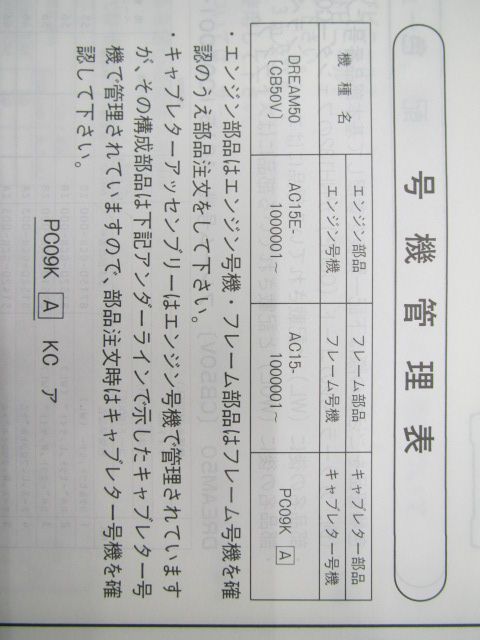 号機管理表
機種名 エンジン部品 フレーム部品 キャブレター部品
エンジン号機 フレーム号機 キャブレター号機
DREAM50 AC15E- AC15- PC09K A
[CB50V] 1000001～ 1000001～
・エンジン部品はエンジン号機・フレーム部品はフレーム号機を確
認のうえ部品注文をして下さい。
・キャブレターアッセンブリーはエンジン号機で管理されています
が、その構成部品は下記アンダーラインで示したキャブレター号
機で管理されていますので、部品注文時はキャブレター号機を確
認して下さい。
PC09K A KC ア